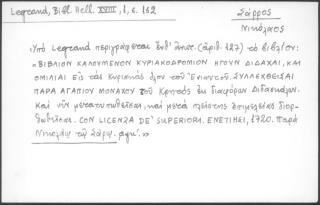 Legrand, Bibl. Hell. XVIII, 1, σ. 162
Σάρρος
Νικόλαος
Ὑπὸ Legrand περιγράφεται ὑπ' ἀριθ. (ἀριθ. 127) τὸ βιβλίον:
«ΒΙΒΛΙΟΝ ΚΑΛΟΥΜΕΝΟΝ ΚΥΡΙΑΚΟΔΡΟΜΙΟΝ ΗΓΟΥΝ ΔΙΔΑΧΑΙ, ΚΑΙ
ΟΜΙΛΙΑΙ ΕΙς τὰς Κυριακὰς ὅλου τοῦ Ἐνιαυτοῦ. ΣΥΛΛΕΧΘΕΙΣΑΙ
ΠΑΡΑ ΑΓΑΠΙΟΥ ΜΟΝΑΧΟΥ τοῦ Κρητὸς ἐκ διαφόρων Διδασκάλων.
Καὶ νῦν μετατυπωθεῖσαι, καὶ μετὰ πλείστης ἐπιμελείας διορ-
θωθεῖσαι. CON LICENZA DE' SUPERIORI. ΕΝΕΤΙΗΣΙ, 1720. Παρὰ
Νικολάῳ τῷ Σάρῳ. ͵αψκ'.»